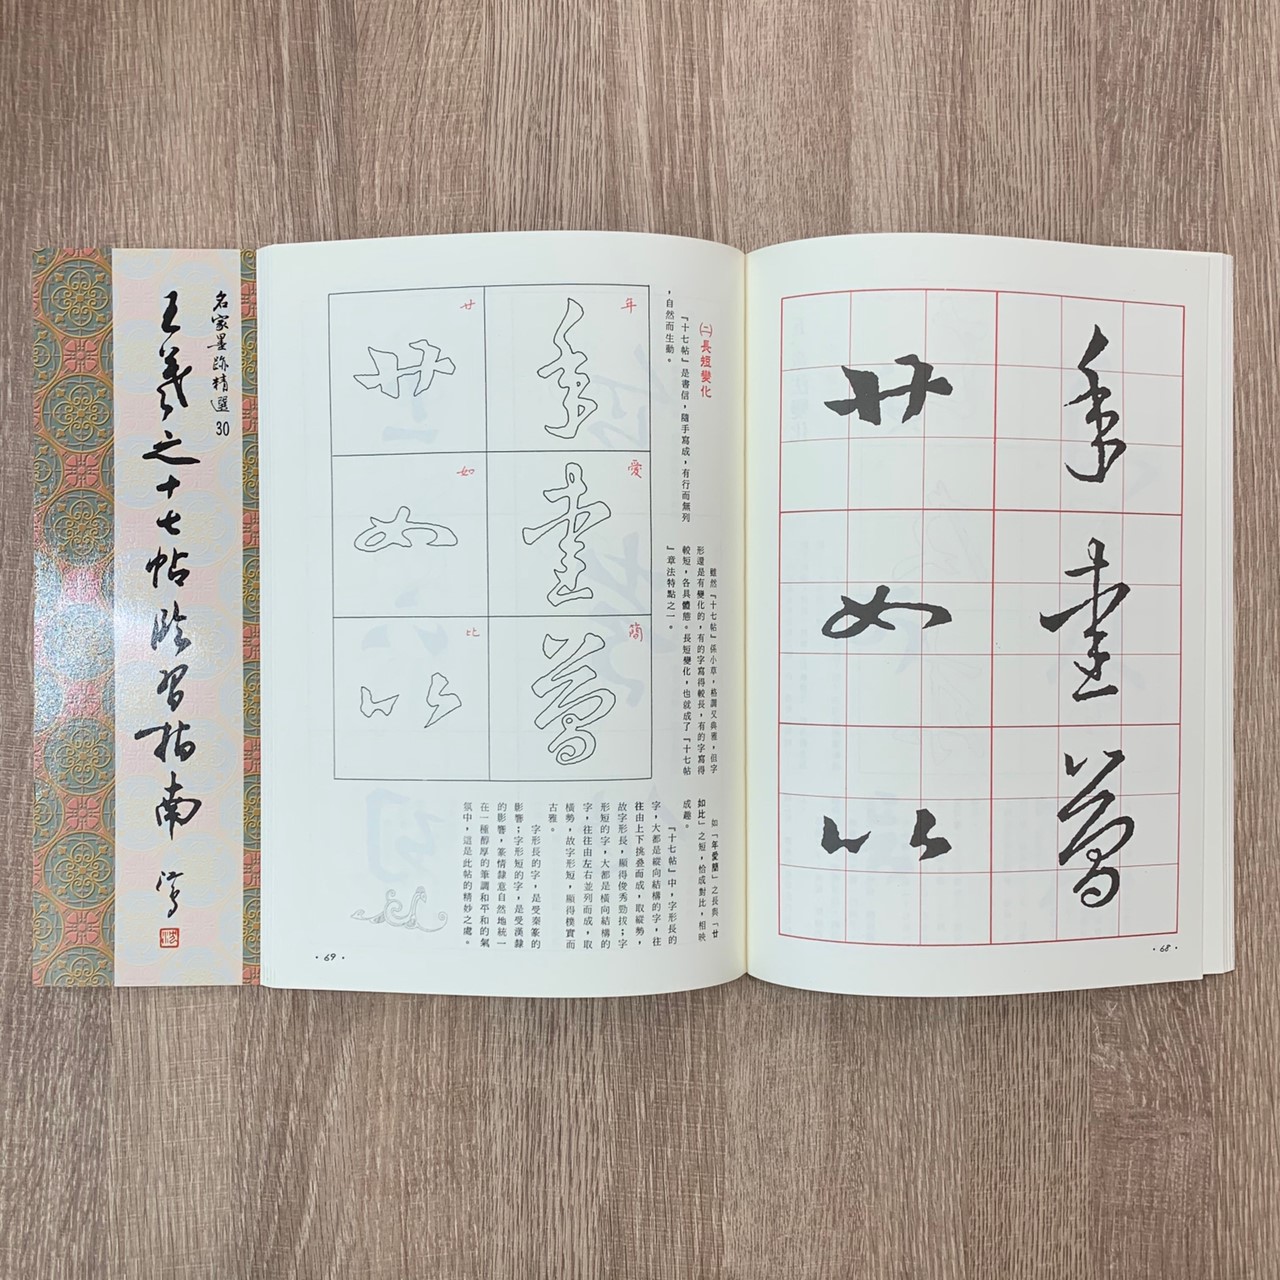 年愛簡
廿如比
·68·
㈡長短變化
『十七帖』是書信，隨手寫成，有行而無列
，自然而生動。
雖然『十七帖』係小草，格調又典雅，但字
形還是有變化的，有的字寫得較長，有的字寫得
較短，各具體態。長短變化，也就成了『十七帖
』章法特點之一。
如「年愛簡」之長與「廿
如比」之短，恰成對比，相映
成趣。
『十七帖』中，字形長的
字，大都是縱向結構的字，往
往由上下挑疊而成，取縱勢，
故字形長，顯得俊秀勁拔；字
形短的字，大都是橫向結構的
字，往往由左右並列而成，取
橫勢，故字形短，顯得樸實而
古雅。
字形長的字，是受秦篆的
影響；字形短的字，是受漢隸
的影響，篆情隸意自然地統一
在一種醇厚的筆調和平和的氣
氛中，這是此帖的精妙之處。
年
愛
簡
廿
如
比
年愛簡
廿如比
·69·
名家墨跡精選30
王羲之十七帖臨習指南